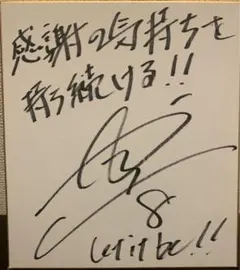 感謝の気持ちを
持ち続ける!!
8
Let it be!!